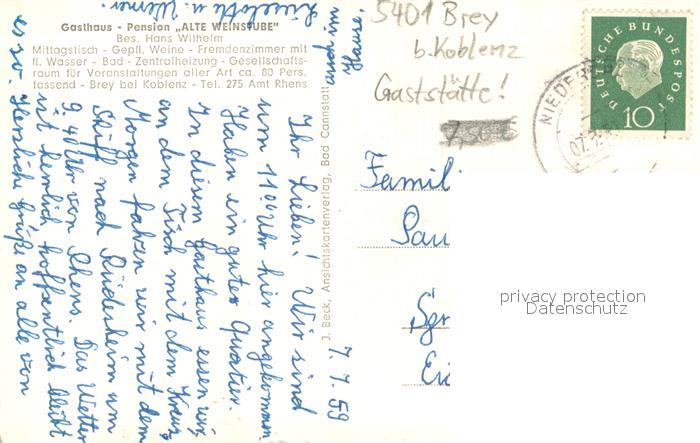 Gasthaus - Pension „ALTE WEINSTUBE"
Bes. Hans Wilhelm
Mittagstisch - Gepfl. Weine - Fremdenzimmer mit
fl. Wasser - Bad - Zentralheizung - Gesellschafts-
raum für Veranstaltungen aller Art ca. 80 Pers.
fassend - Brey bei Koblenz - Tel. 275 Amt Rhens
7.7.59
Ihr Lieben! Wir sind
um 11°° Uhr hier angekommen
Haben ein gutes Quatier.
In diesem Gasthaus essen wir,
an dem Tisch mit dem Kreuz
Morgen fahren wir mit dem
Schiff nach Rüdesheim um
9.40 Uhr von Rhens. Das Wetter
ist herrlich hoffentlich bleibt
es so. Herzliche Grüße an alle von
Liselotte u. Werner.
J. Beck, Ansichtskartenverlag, Bad Cannstatt
5401 Brey
b. Koblenz
Gaststätte!
7,50 €
DEUTSCHE BUNDESPOST
10
NIEDER
07.7
Famil
Pau
privacy protection
Datenschutz